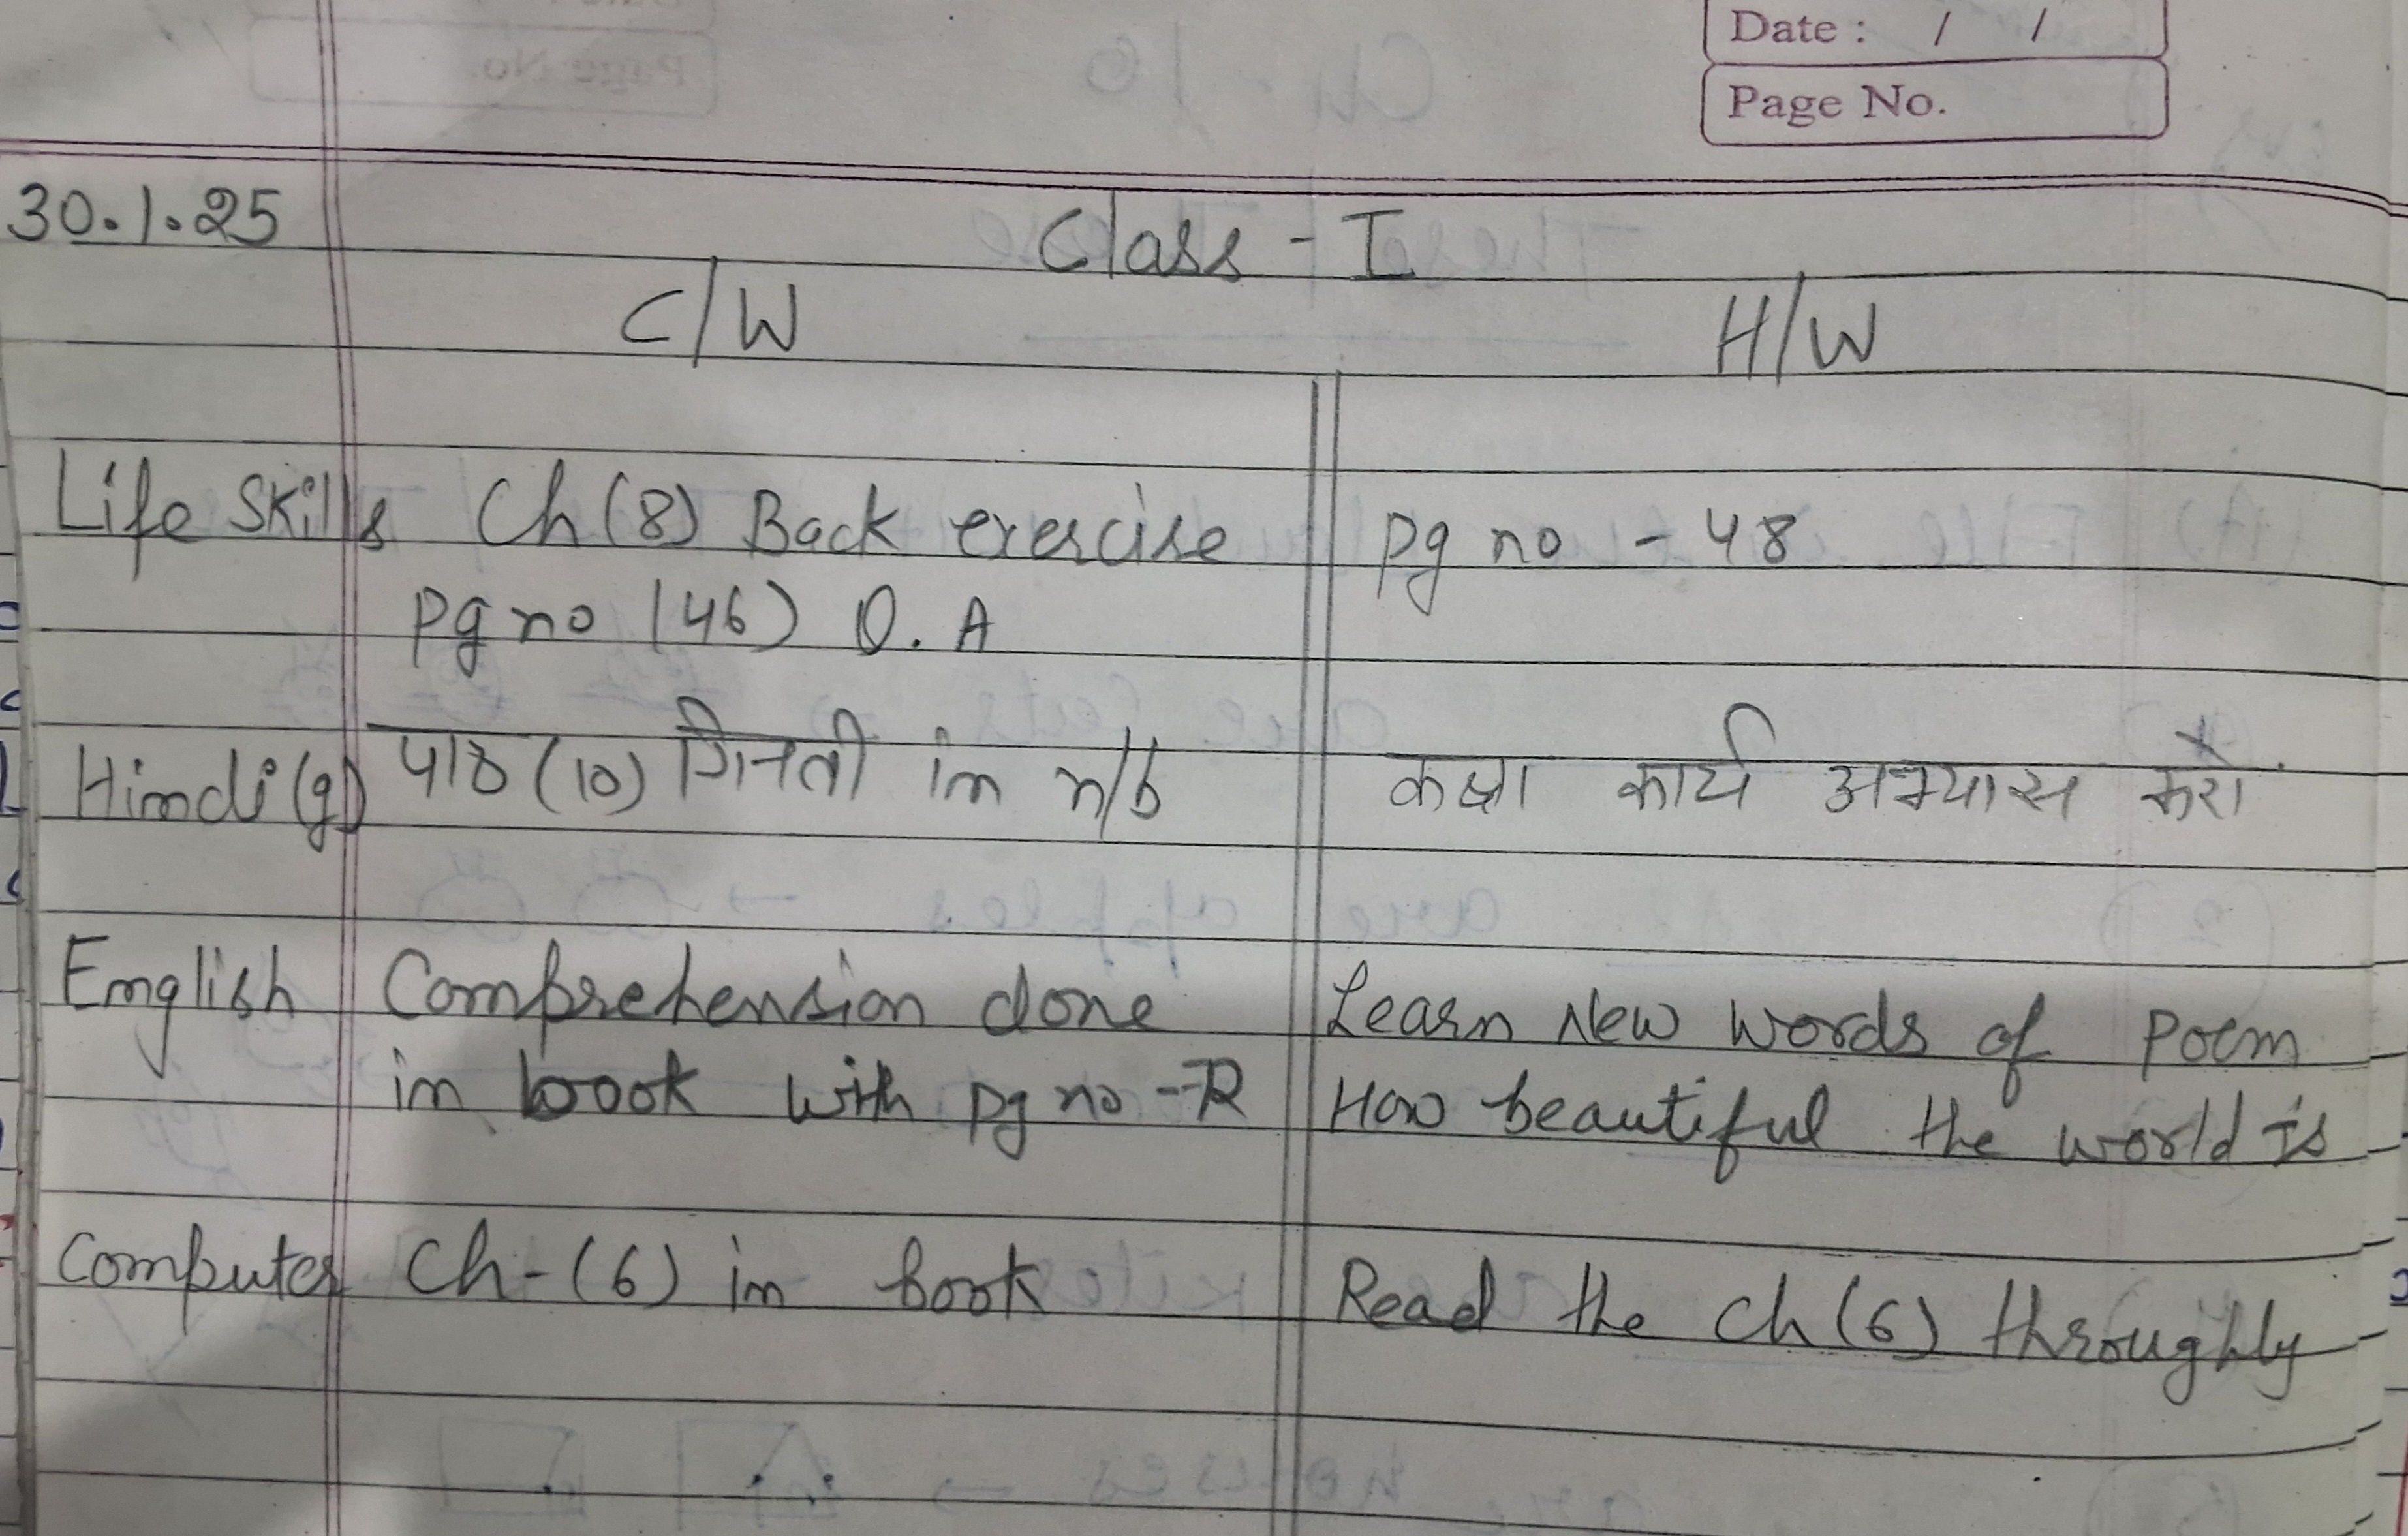 Date : / /
Page No.
30.1.25
Class - I
C/W
H/W
Life Skills Ch (8) Back exercise pg no - 48
pg no (46) Q. A
Hindi (g) पाठ (10) गिनती in n/b कक्षा कार्य अभ्यास करो
English Comprehension done Learn New words of Poem
in book with pg no - R How beautiful the world is
Computer Ch - (6) in book Read the ch (6) throughly